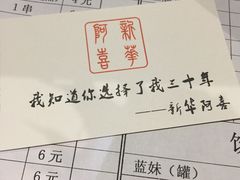 1串
新華
阿喜
我知道你选择了我三十年
——新华阿喜
6元
6元
蓝妹（罐）